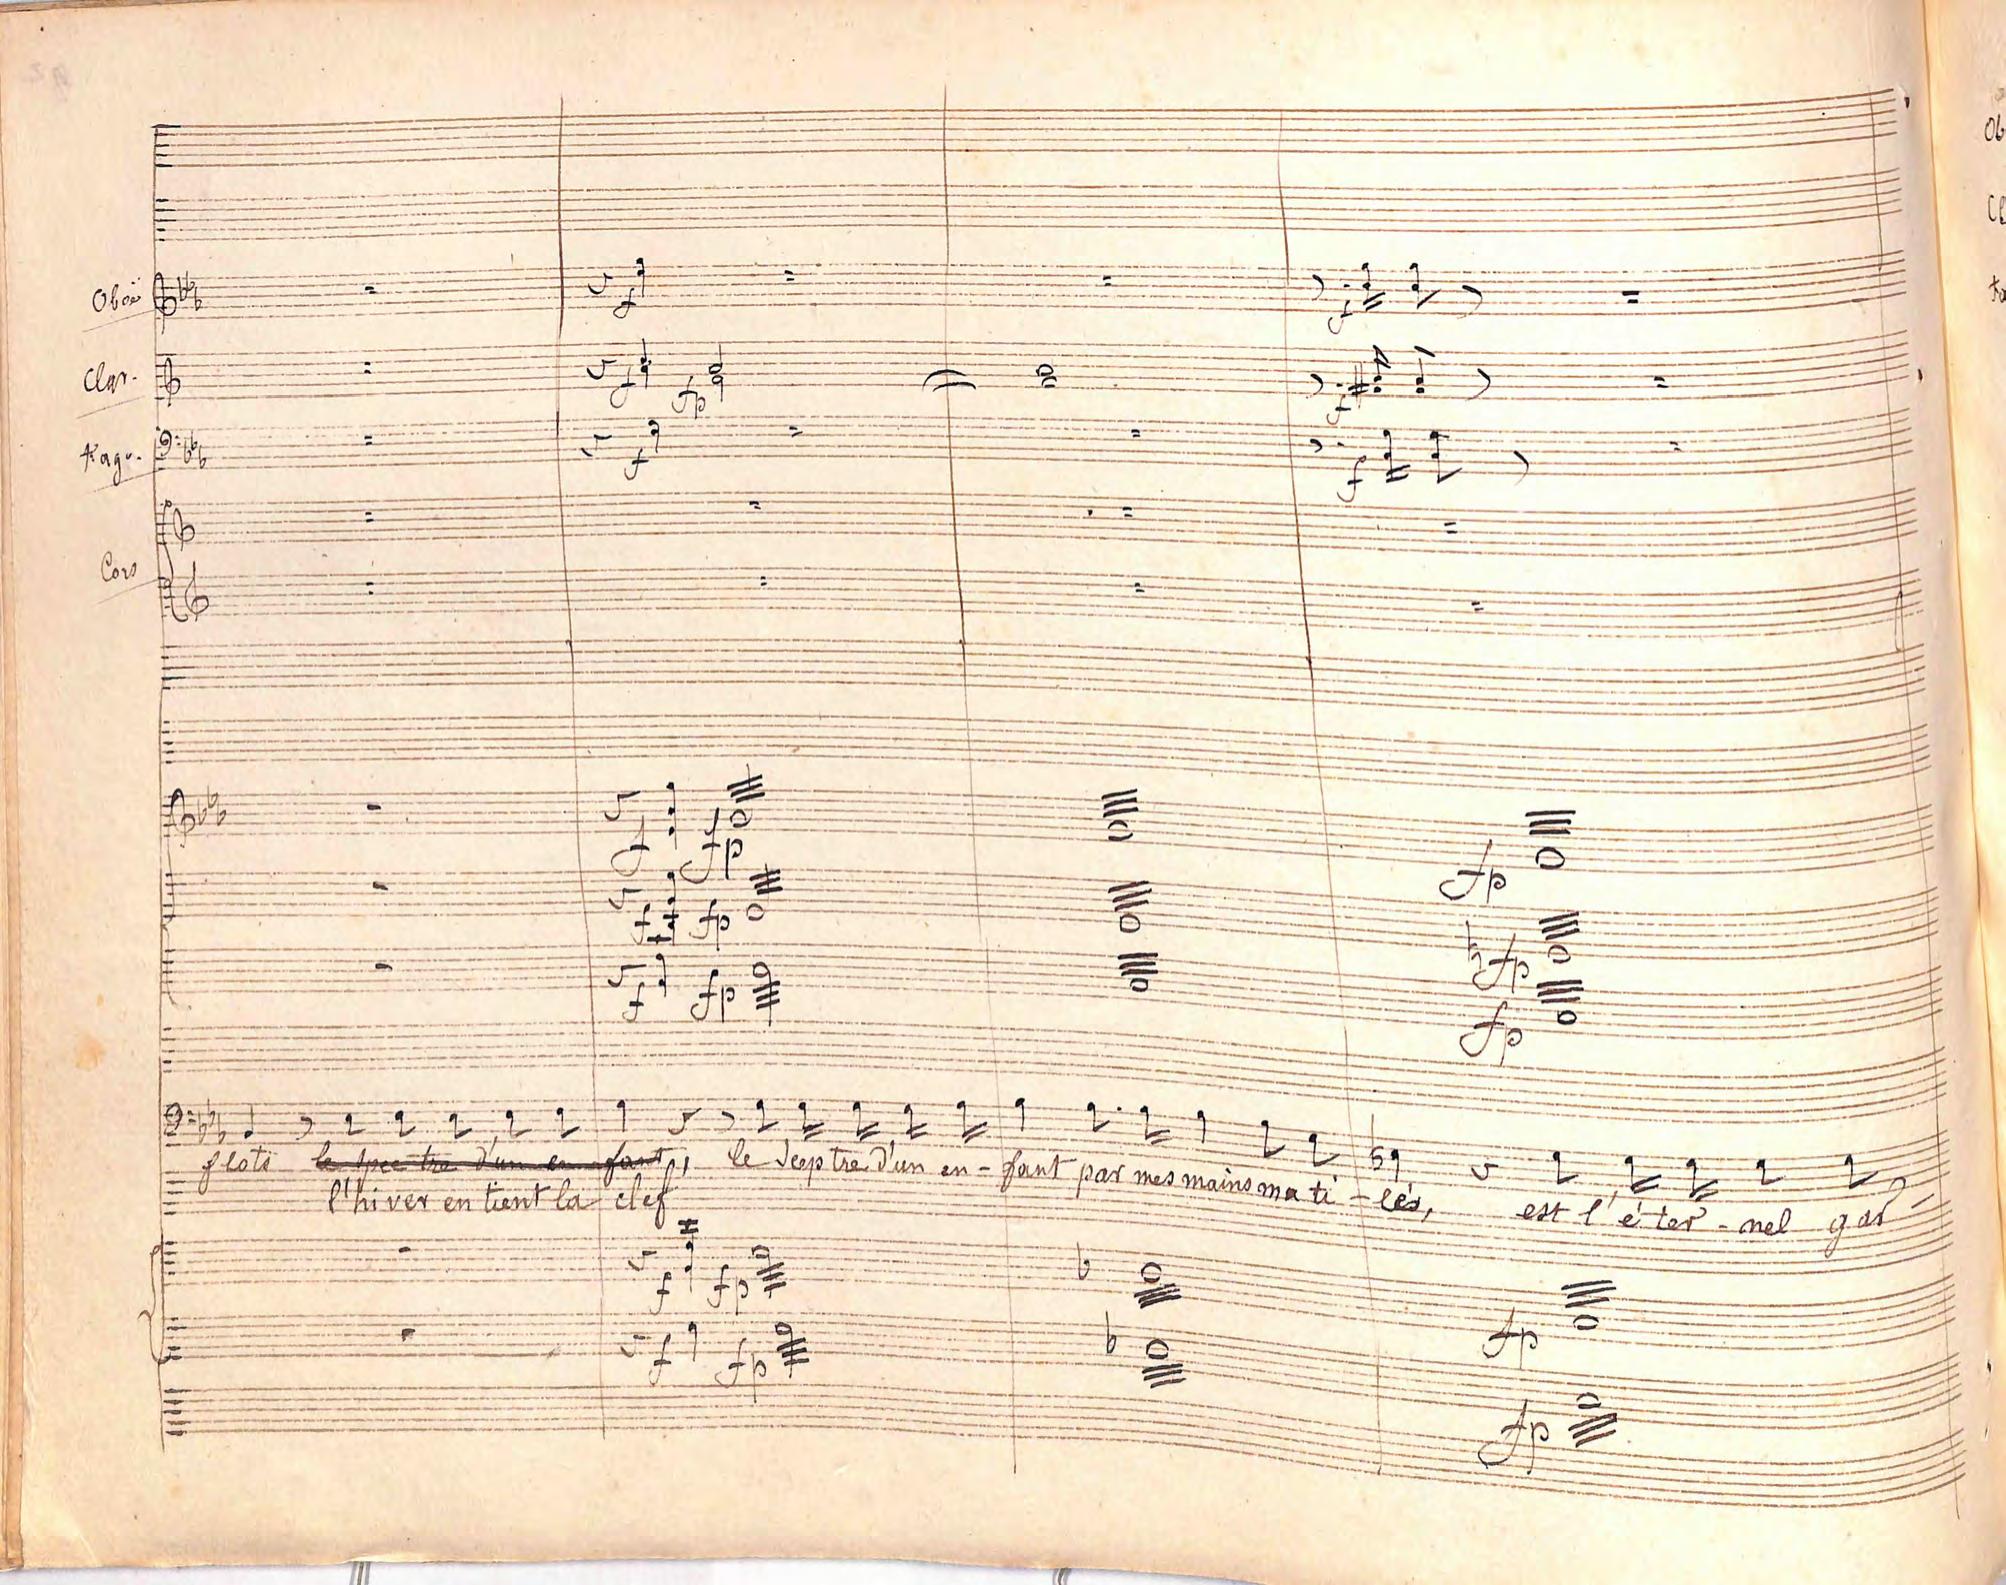 Oboi
f
Clar.
f fp f
Fagv.
f f
Cors
f fp fp
f fp fp
f fp fp
flots le spectre d'un en fant, le sceptre d'un en - fant par mes mains mu ti - lés, est l'é ter - nel gar
l'hiver en tient la clef
f fp fp
f fp fp
Ob